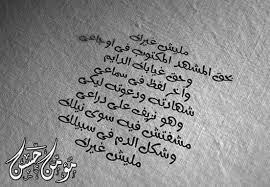 مليش غيرك
بحق المشهد المكتوب في أوجاعي
وحق غيابك الدايم
وأخر لفظ في سماعي
شهادتك ودعوتك ليكي
وهو نزيف على دراعي
مفتش فيه سوى نيلك
وشكل الدم في سبيلك
مليش غيرك
مؤمن حسن